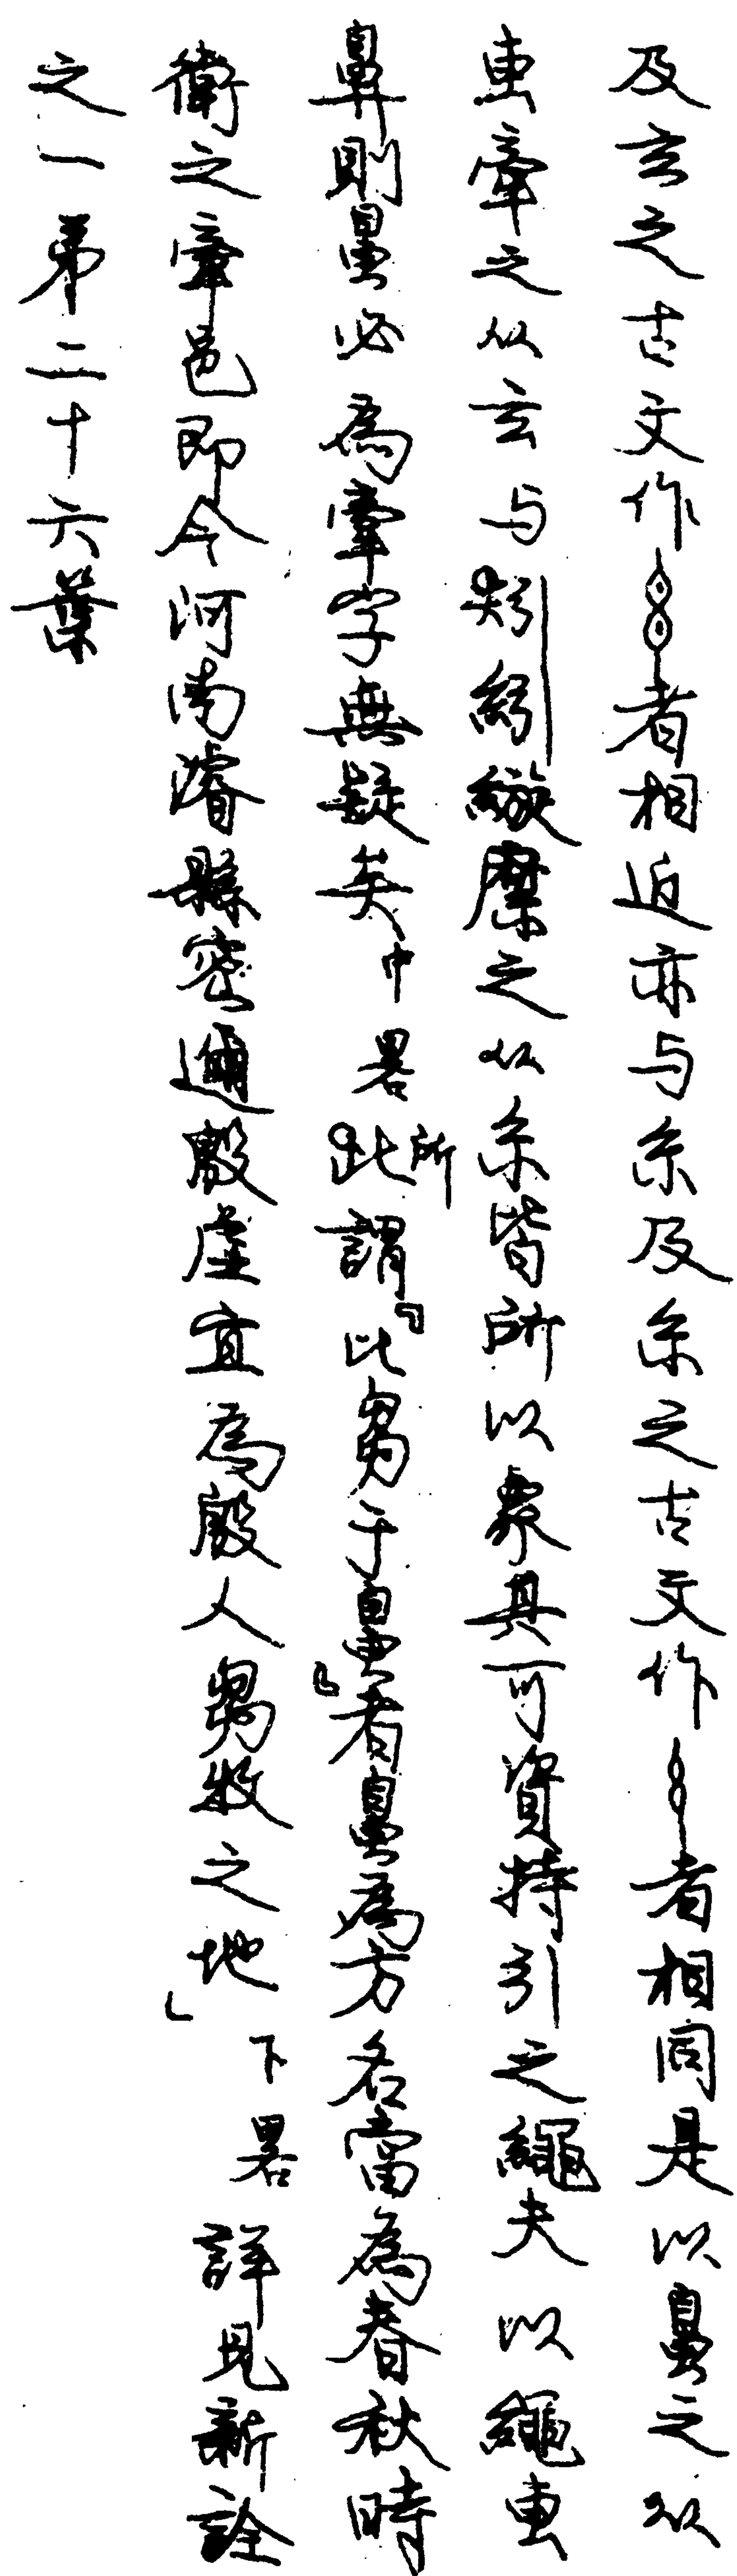 及玄之古文作者相近亦与糸及糸之古文作者相同是以𤲸之从
叀牽之从玄与紖絼縼縻之从糸皆所以象其可資持引之繩夫以繩叀
鼻則𤲸必為牽字無疑矣中畧所謂『此芻于𤲸』者𤲸為方名當為春秋時
衛之牽邑即今河南濬縣密邇殷虛宜為殷人芻牧之地」下畧詳見新詮
之一弟二十六葉